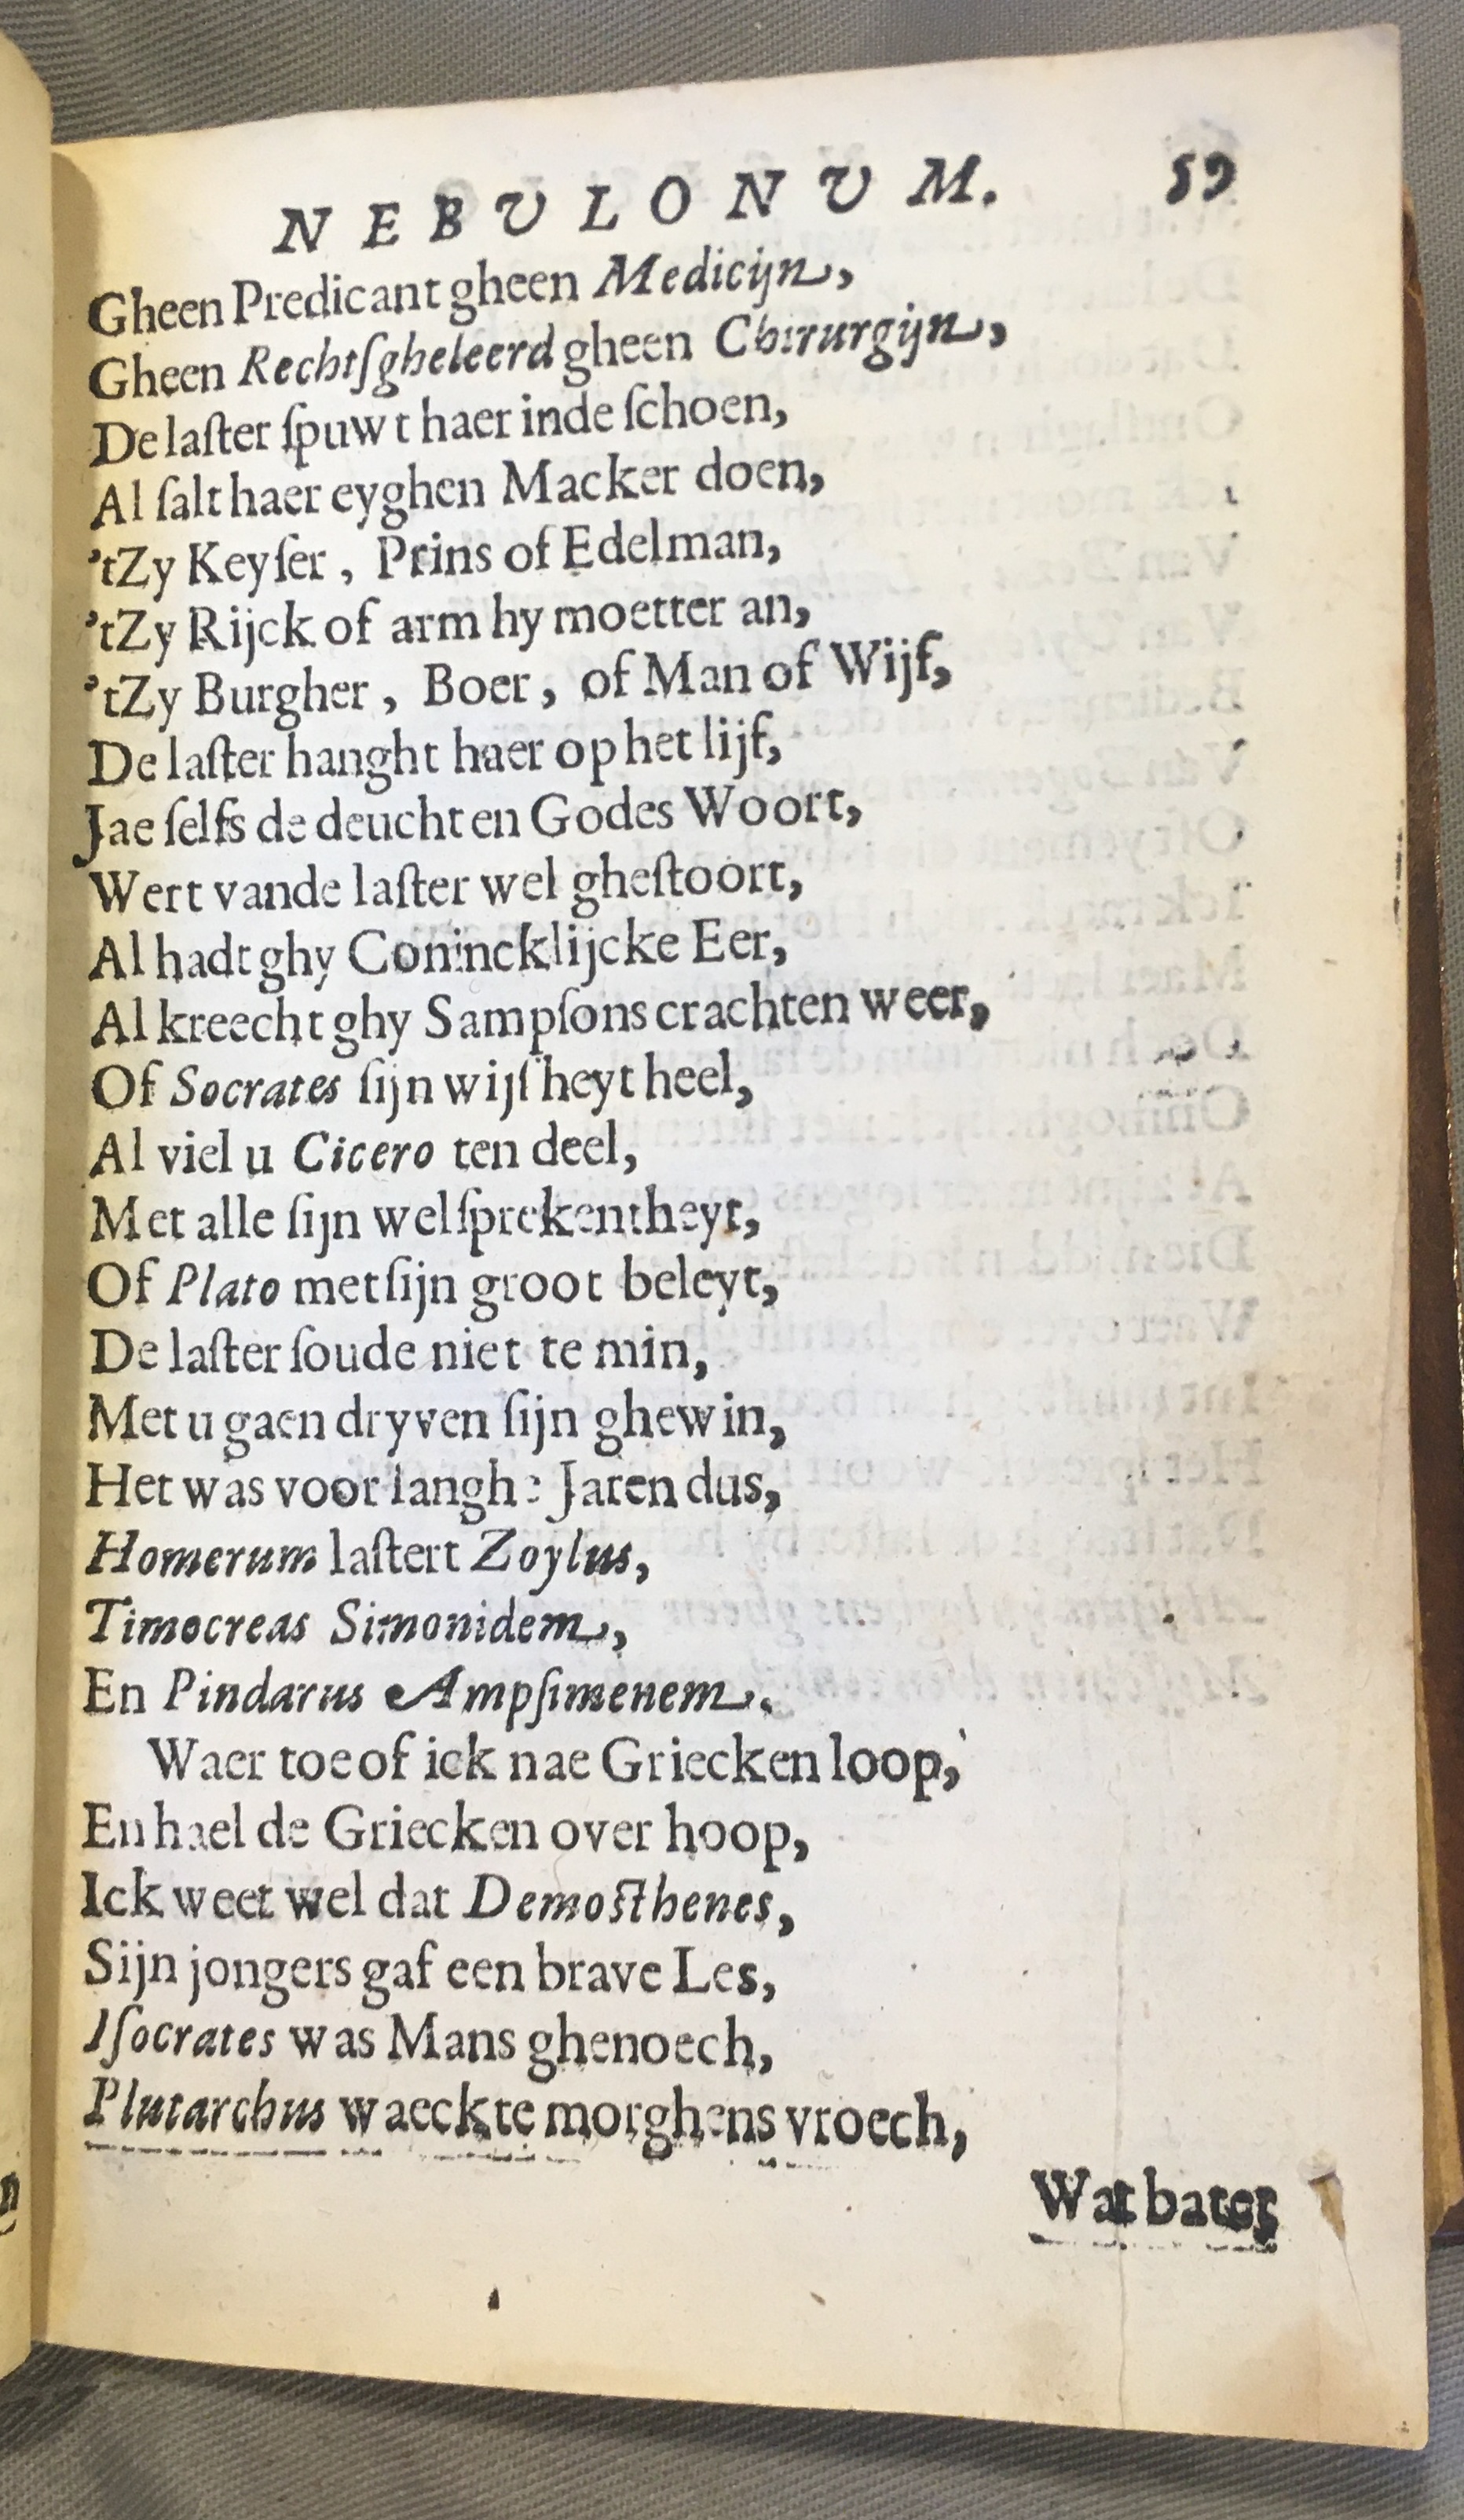 NEBVLONVM. 59
Gheen Predicant gheen Medicijn,
Gheen Rechtſgheleerd gheen Chirurgijn,
De laſter ſpuwt haer inde ſchoen,
Al ſalt haer eyghen Macker doen,
'tZy Keyſer, Prins of Edelman,
'tZy Rijck of arm hy moetter an,
'tZy Burgher, Boer, of Man of Wijf,
De laſter hanght haer op het lijf,
Jae ſelfs de deucht en Godes Woort,
Wert vande laſter wel gheſtoort,
Al hadt ghy Conincklijcke Eer,
Al kreecht ghy Sampſons crachten weer,
Of Socrates ſijn wijſheyt heel,
Al viel u Cicero ten deel,
Met alle ſijn welſprekentheyt,
Of Plato met ſijn groot beleyt,
De laſter ſoude niet te min,
Met u gaen dryven ſijn ghewin,
Het was voor langhe Jaren dus,
Homerum laſtert Zoylus,
Timocreas Simonidem,
En Pindarus Ampſimenem.
Waer toe of ick nae Griecken loop,
En hael de Griecken over hoop,
Ick weet wel dat Demoſthenes,
Sijn jongers gaf een brave Les,
Iſocrates was Mans ghenoech,
Plutarchus waeckte morghens vroech,
Wat bater